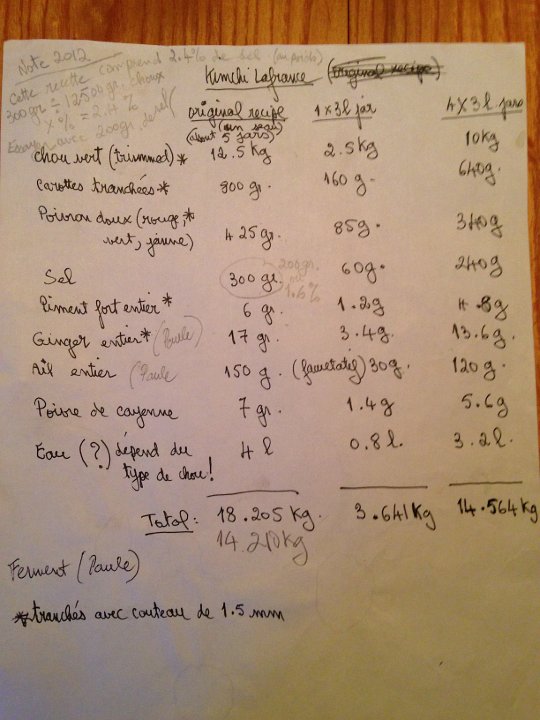 Note 2012
Cette recette comprend 2.4% de sel (au poids)
300gr = 12500gr. choux
x % = 2.4 %
Essayer avec 200gr. de sel
Kimchi Lafrance (original recipe)
original recipe 1 x 3 l jar 4 x 3 l jars
(about 5 jars)
chou vert (trimmed)* 12.5 kg 2.5 kg 10 kg
Carottes tranchées* 800 gr. 160 g. 640 g.
Poivron doux (rouge,*
vert, jaune) 425 gr. 85 g. 340 g
Sel 300 gr. 200 gr. 1.6% 60 g. 240 g
Piment fort entier* 6 gr. 1.2 g 4.8 g
Ginger entier* (Paule) 17 gr. 3.4 g. 13.6 g.
Ail entier (Paule 150 g. (facultatif) 30 g. 120 g.
Poivre de cayenne 7 gr. 1.4 g 5.6 g
Eau (?) dépend du 4 l 0.8 l. 3.2 l.
type de chou!
Total: 18.205 kg. 3.641 kg 14.564 kg
14.210 kg
Ferment (Paule)
*tranchés avec couteau de 1.5 mm